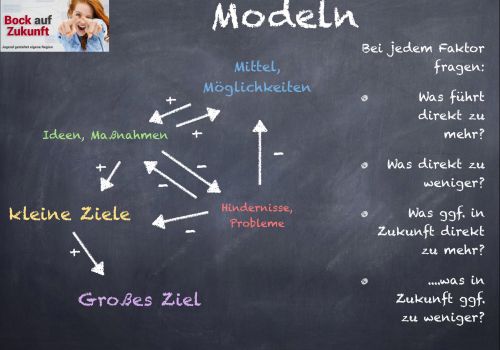 Bock auf
Zukunft
Jugend gestaltet eigene Region
Modeln
Mittel,
Möglichkeiten
+
+
-
Ideen, Maßnahmen
+
-
-
kleine Ziele
-
Hindernisse,
Probleme
+
Großes Ziel
Bei jedem Faktor
fragen:
Was führt
direkt zu
mehr?
Was direkt zu
weniger?
Was ggf. in
Zukunft direkt
zu mehr?
....was in
Zukunft ggf.
zu weniger?